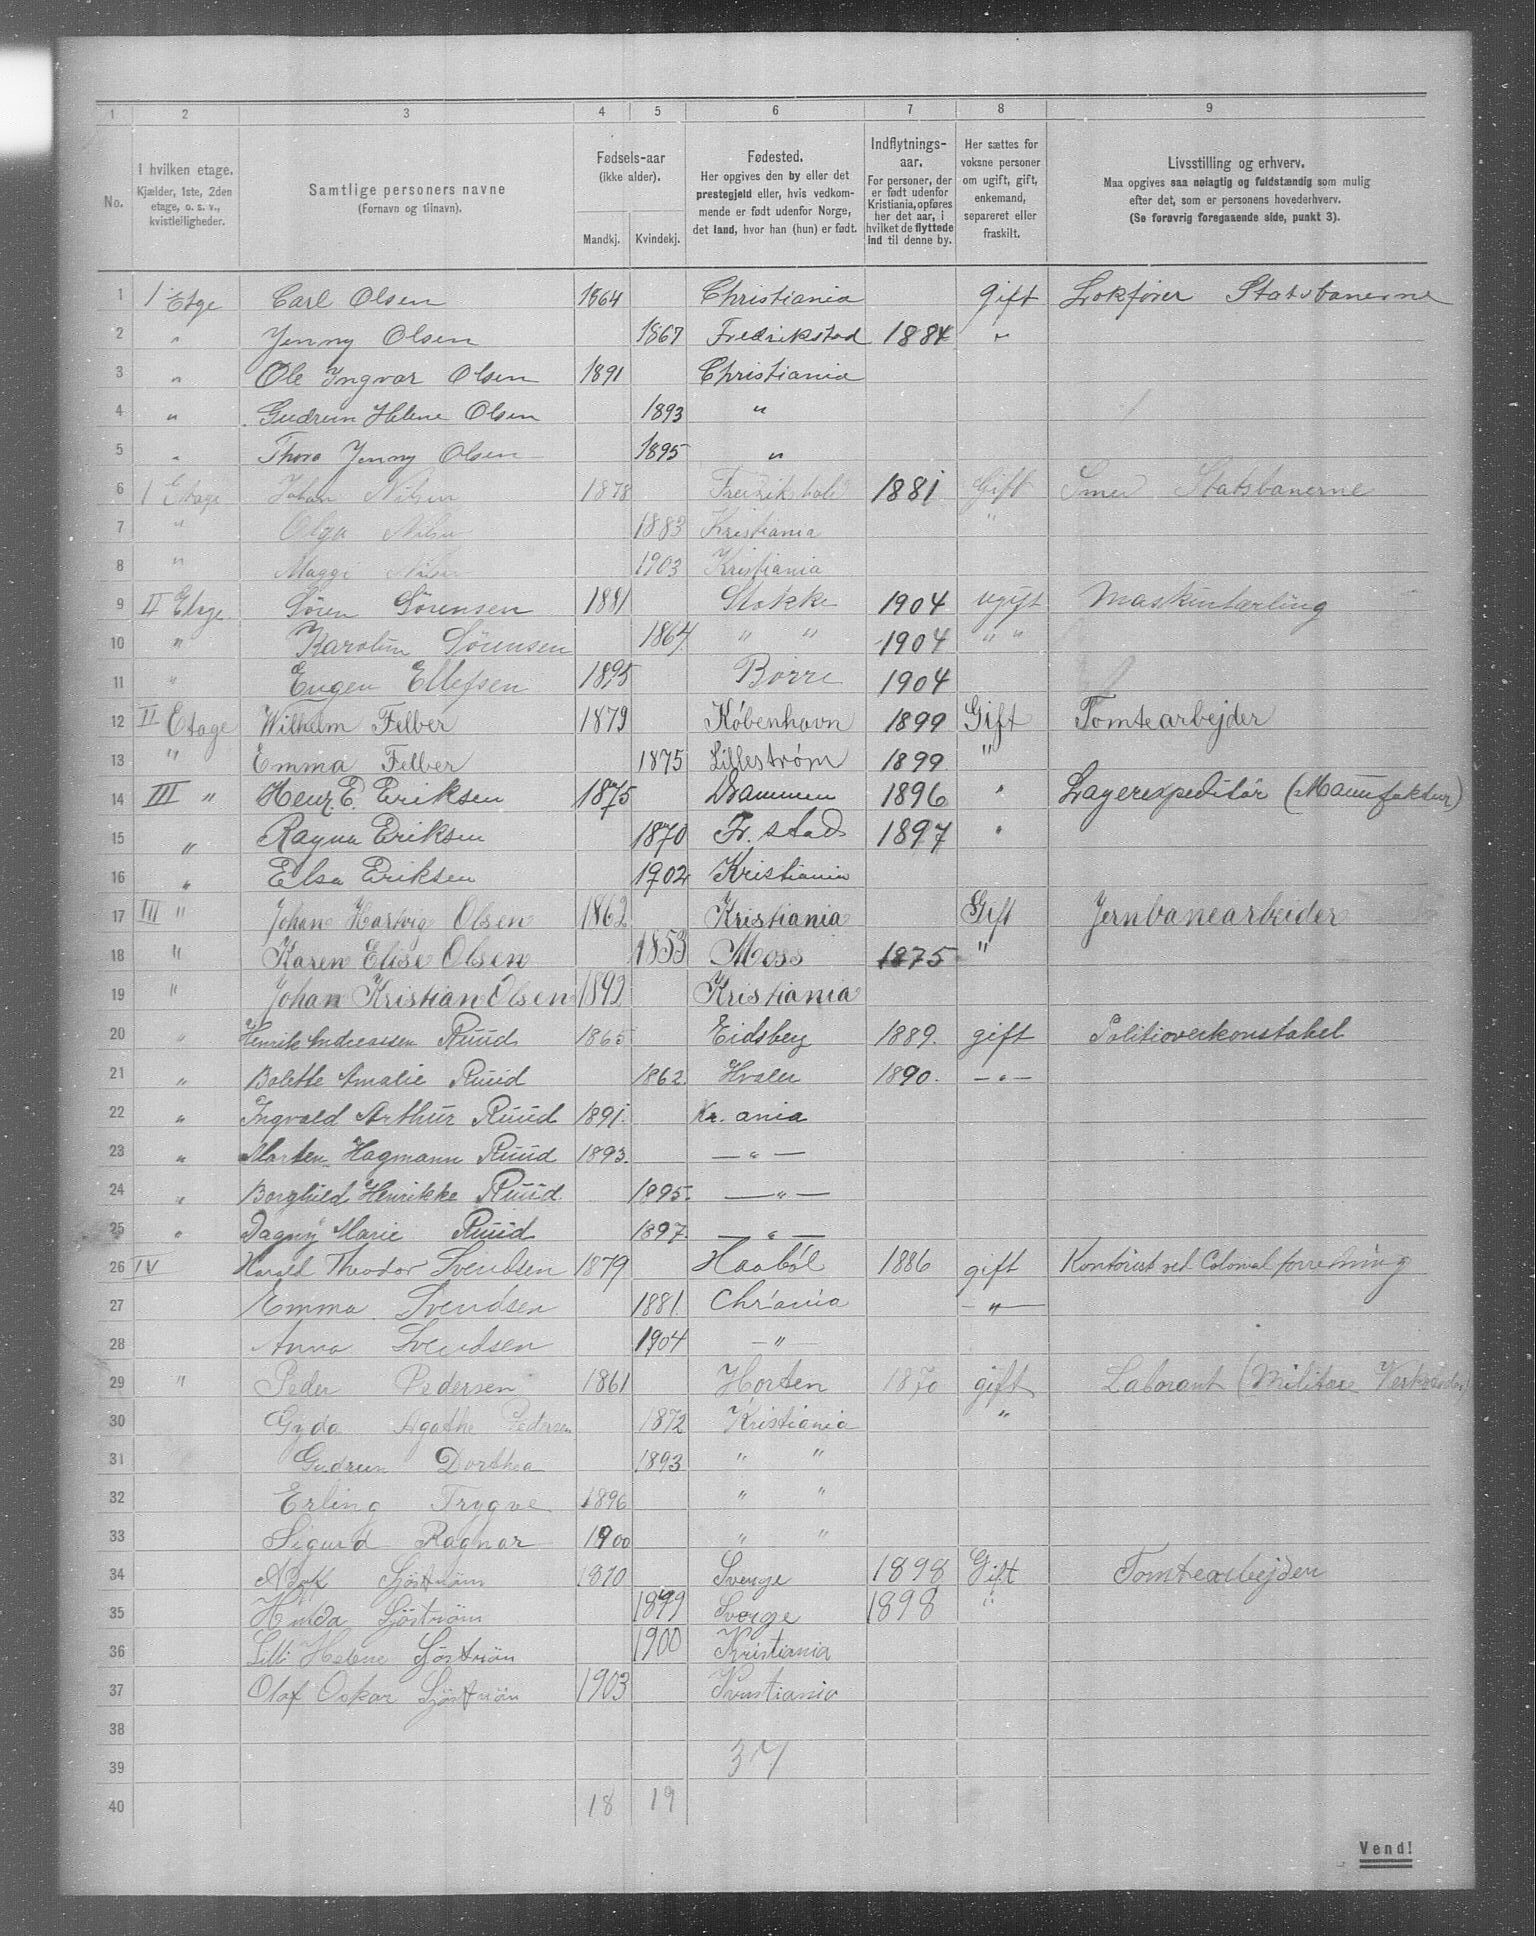 1 2 3 4 5 6 7 8 9
No. I hvilken etage. Kjælder, 1ste, 2den etage, o. s. v., kvistleiligheder. Samtlige personers navne (Fornavn og tilnavn). Fødsels-aar (ikke alder). Mandkj. Kvindekj. Fødested. Her opgives den by eller det prestegjeld eller, hvis vedkommende er født udenfor Norge, det land, hvor han (hun) er født. Indflytnings-aar. For personer, der er født udenfor Kristiania, opføres her det aar, i hvilket de flyttede ind til denne by. Her sættes for voksne personer om ugift, gift, enkemand, separeret eller fraskilt. Livsstilling og erhverv. Maa opgives saa nøiagtig og fuldstændig som mulig efter det, som er personens hovederhverv. (Se forøvrig foregaaende side, punkt 3).
1 1 Etge Carl Olsen 1864 Christiania gift Lokfører Statsbanerne
2 " Jenny Olsen 1867 Fredrikstad 1884 "
3 " Ole Ingvar Olsen 1891 Christiania
4 " Gudrun Helene Olsen 1893 "
5 " Thora Jenny Olsen 1895 "
6 1 Etage Johan Nilsen 1878 1881 Gift Smed Statsbanerne
7 " Olga Nilsen 1883 Kristiania "
8 " Maggi Nilsen 1903 Kristiania
9 II Etage Sören Sörensen 1881 Stokke 1904 ugift Maskinlærling
10 " Karolin Sörensen 1864 " " 1904 " "
11 " Eugen Ellefsen 1895 Borre 1904
12 II Etage Wilhelm Felber 1879 København 1899 Gift Tomtearbejder
13 " Emma Felber 1875 Lillestrøm 1899 "
14 III " Henr. E. Eriksen 1875 Drammen 1896 " Lagerexpeditör (Manufaktur)
15 " Ragna Eriksen 1870 Fr. stad 1897 "
16 " Elsa Eriksen 1902 Kristiania
17 III " Johan Hartvig Olsen 1862 Kristiania Gift Jernbanearbeider
18 " Karen Elise Olsen 1853 Moss 1875 "
19 " Johan Kristian Olsen 1892 Kristiania
20 " Henrik Andreassen Ruud 1865 Eidsberg 1889. gift Politioverkonstabel
21 " Bolette Amalie Ruud 1862. Hvaler 1890. — " —
22 " Ingvald Arthur Ruud 1891. Kr. ania
23 " Marten Hagmann Ruud 1893. — " —
24 " Borghild Henrikke Ruud 1895. — " —
25 " Dagny Marie Ruud 1897. — " —
26 IV Harald Theodor Svendsen 1879 Haaböl 1886 gift Kontorist ved Colonial forretning
27 Emma Svendsen 1881. Chr'ania — " —
28 Anna Svendsen 1904 — " —
29 " Peder Pedersen 1861 Horten 1870 gift Laborant (Militære
30 Gyda Agathe Pedersen 1872 Kristiania "
31 Gudrun Dorthea 1893 " "
32 Erling Trygve 1896 " "
33 Sigurd Ragnar 1900 " "
34 Adolf Sjöström 1870 Sverge 1898 Gift Tomtearbejder
35 Sjöström Sverge 1898 "
36 Lilli Helene Sjöström 1900 Kristiania
37 Olaf Oskar Sjöström 1903 Kristiania
38
39 37
40 18 19
Vend!